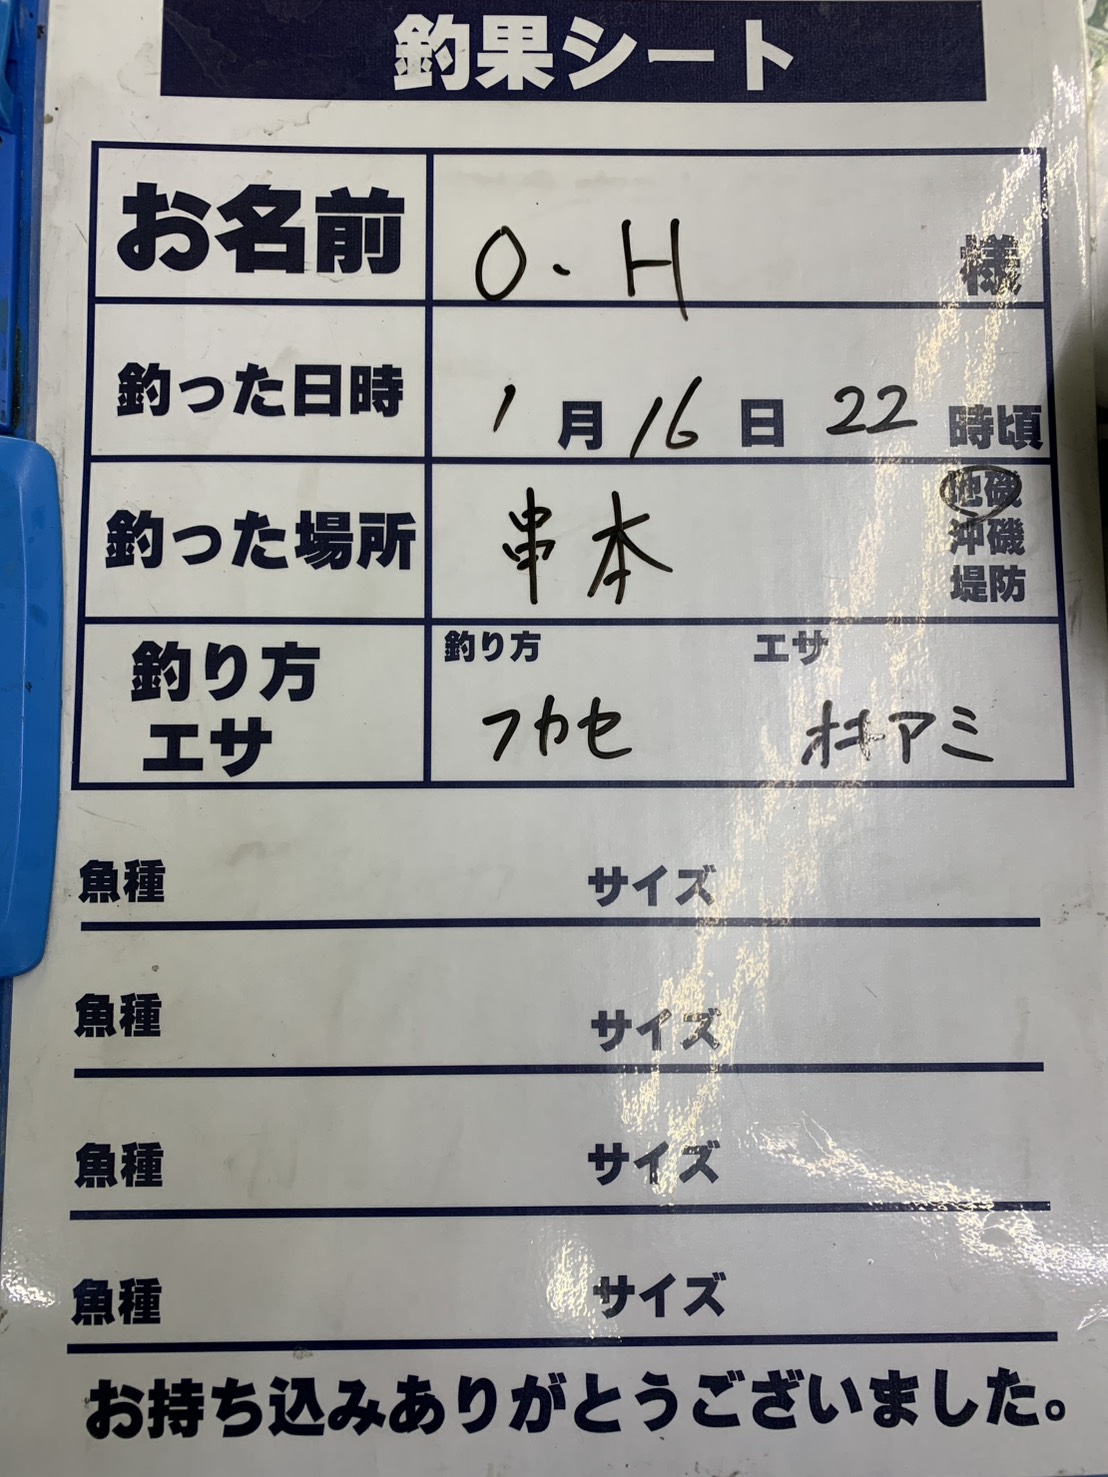 釣果シート
お名前 O.H 様
釣った日時 1月16日22時頃
釣った場所 串本 地磯
沖磯
堤防
釣り方 エサ
釣り方
エサ
フカセ オキアミ
魚種 サイズ
魚種 サイズ
魚種 サイズ
魚種 サイズ
お持ち込みありがとうございました。